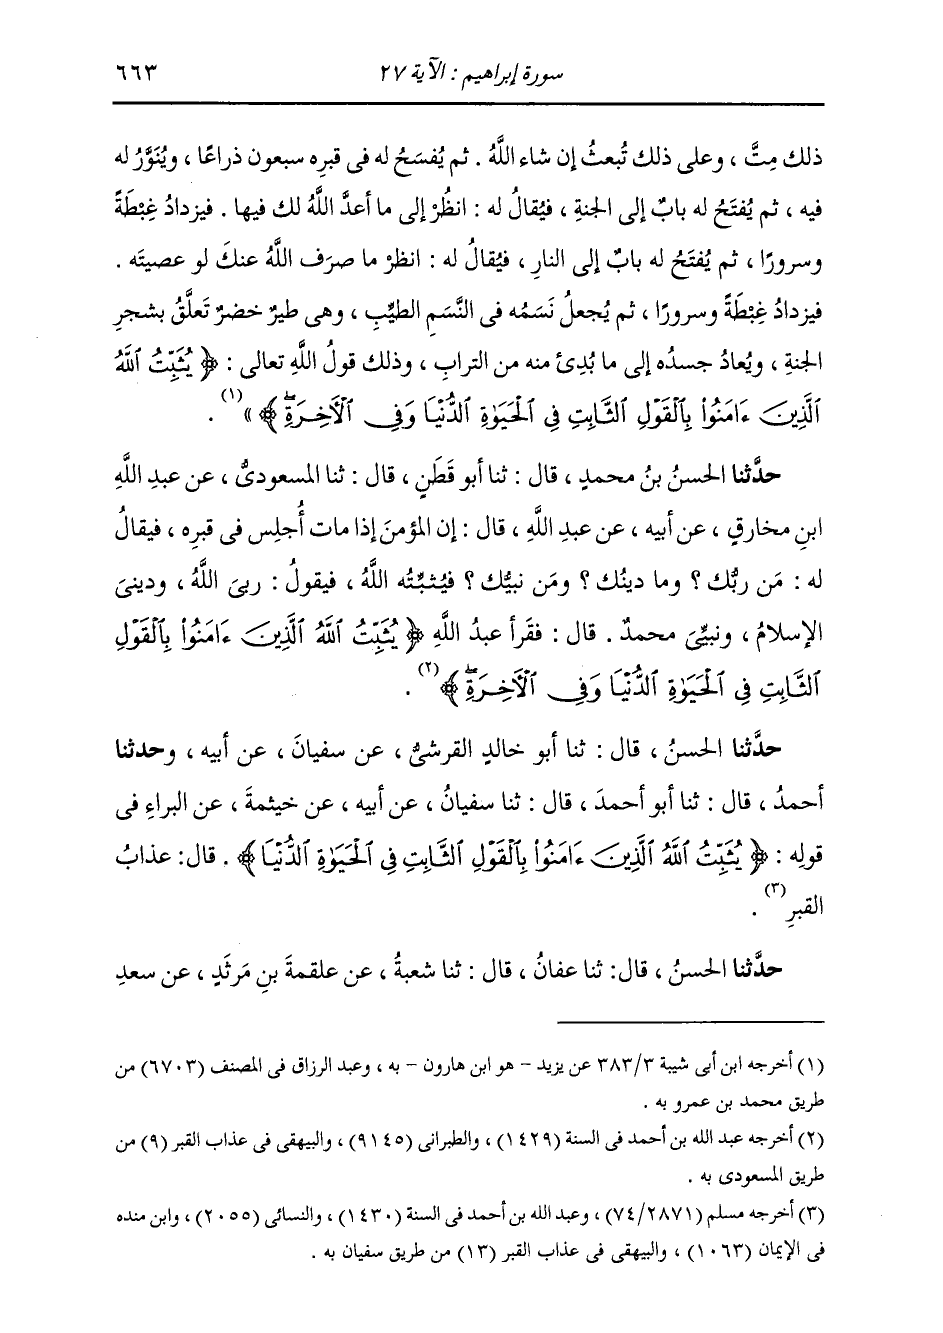 سورة إبراهيم : الآية ٢٧
٦٦٣
ذلك مِتَّ ، وعلى ذلك تُبعثُ إن شاء اللَّهُ . ثم يُفسَحُ له فى قبرِه سبعون ذراعًا ، ويُنَوَّرُ له
فيه ، ثم يُفتَحُ له بابٌ إلى الجنةِ ، فيُقالُ له : انظُرْ إلى ما أعدَّ اللَّهُ لك فيها . فيزدادُ غِبْطَةً
وسرورًا ، ثم يُفتَحُ له بابٌ إلى النارِ ، فيُقالُ له : انظرْ ما صرَف اللَّهُ عنكَ لو عصيتَه .
فيزدادُ غِبْطَةً وسرورًا ، ثم يُجعلُ نَسَمُه فى النَّسَمِ الطيِّبِ ، وهى طيرٌ خضرٌ تَعلَّقُ بشجرِ
الجنةِ ، ويُعادُ جسدُه إلى ما بُدِئ منه من الترابِ ، وذلك قولُ اللَّهِ تعالى : ﴿ يُثَبِّتُ ٱللَّهُ
ٱلَّذِينَ ءَامَنُوا۟ بِٱلْقَوْلِ ٱلثَّابِتِ فِى ٱلْحَيَوٰةِ ٱلدُّنْيَا وَفِى ٱلْأَخِرَةِۖ ﴾ »(١) .
حدَّثنا الحسنُ بنُ محمدٍ ، قال : ثنا أبو قَطَنٍ ، قال : ثنا المسعودىُّ ، عن عبدِ اللَّهِ
ابنِ مخارقٍ ، عن أبيه ، عن عبدِ اللَّهِ ، قال : إن المؤمنَ إذا مات أُجلِس فى قبرِه ، فيقالُ
له : مَن ربُّك ؟ وما دينُك ؟ ومَن نبيُّك ؟ فيُثبِّتُه اللَّهُ ، فيقولُ : ربىَ اللَّهُ ، ودينىَ
الإسلامُ ، ونبيِّىَ محمدٌ . قال : فقَرأ عبدُ اللَّهِ ﴿ يُثَبِّتُ ٱللَّهُ ٱلَّذِينَ ءَامَنُوا۟ بِٱلْقَوْلِ
ٱلثَّابِتِ فِى ٱلْحَيَوٰةِ ٱلدُّنْيَا وَفِى ٱلْأَخِرَةِۖ ﴾(٢) .
حدَّثنا الحسنُ ، قال : ثنا أبو خالدٍ القرشىُّ ، عن سفيانَ ، عن أبيه ، وحدثنا
أحمدُ ، قال : ثنا أبو أحمدَ ، قال : ثنا سفيانُ ، عن أبيه ، عن خيثمةَ ، عن البراءِ فى
قولِه : ﴿ يُثَبِّتُ ٱللَّهُ ٱلَّذِينَ ءَامَنُوا۟ بِٱلْقَوْلِ ٱلثَّابِتِ فِى ٱلْحَيَوٰةِ ٱلدُّنْيَا ﴾ . قال : عذابُ
القبرِ(٣) .
حدَّثنا الحسنُ ، قال : ثنا عفانُ ، قال : ثنا شعبةُ ، عن علقمةَ بنِ مَرثَدٍ ، عن سعدِ
(١) أخرجه ابن أبى شيبة ٣٨٣/٣ عن يزيد - هو ابن هارون - به ، وعبد الرزاق فى المصنف (٦٧٠٣) من
طريق محمد بن عمرو به .
(٢) أخرجه عبد الله بن أحمد فى السنة (١٤٢٩) ، والطبرانى (٩١٤٥) ، والبيهقى فى عذاب القبر (٩) من
طريق المسعودى به .
(٣) أخرجه مسلم (٧٤/٢٨٧١) ، وعبد الله بن أحمد فى السنة (١٤٣٠) ، والنسائى (٢٠٥٥) ، وابن منده
فى الإيمان (١٠٦٣) ، والبيهقى فى عذاب القبر (١٣) من طريق سفيان به .